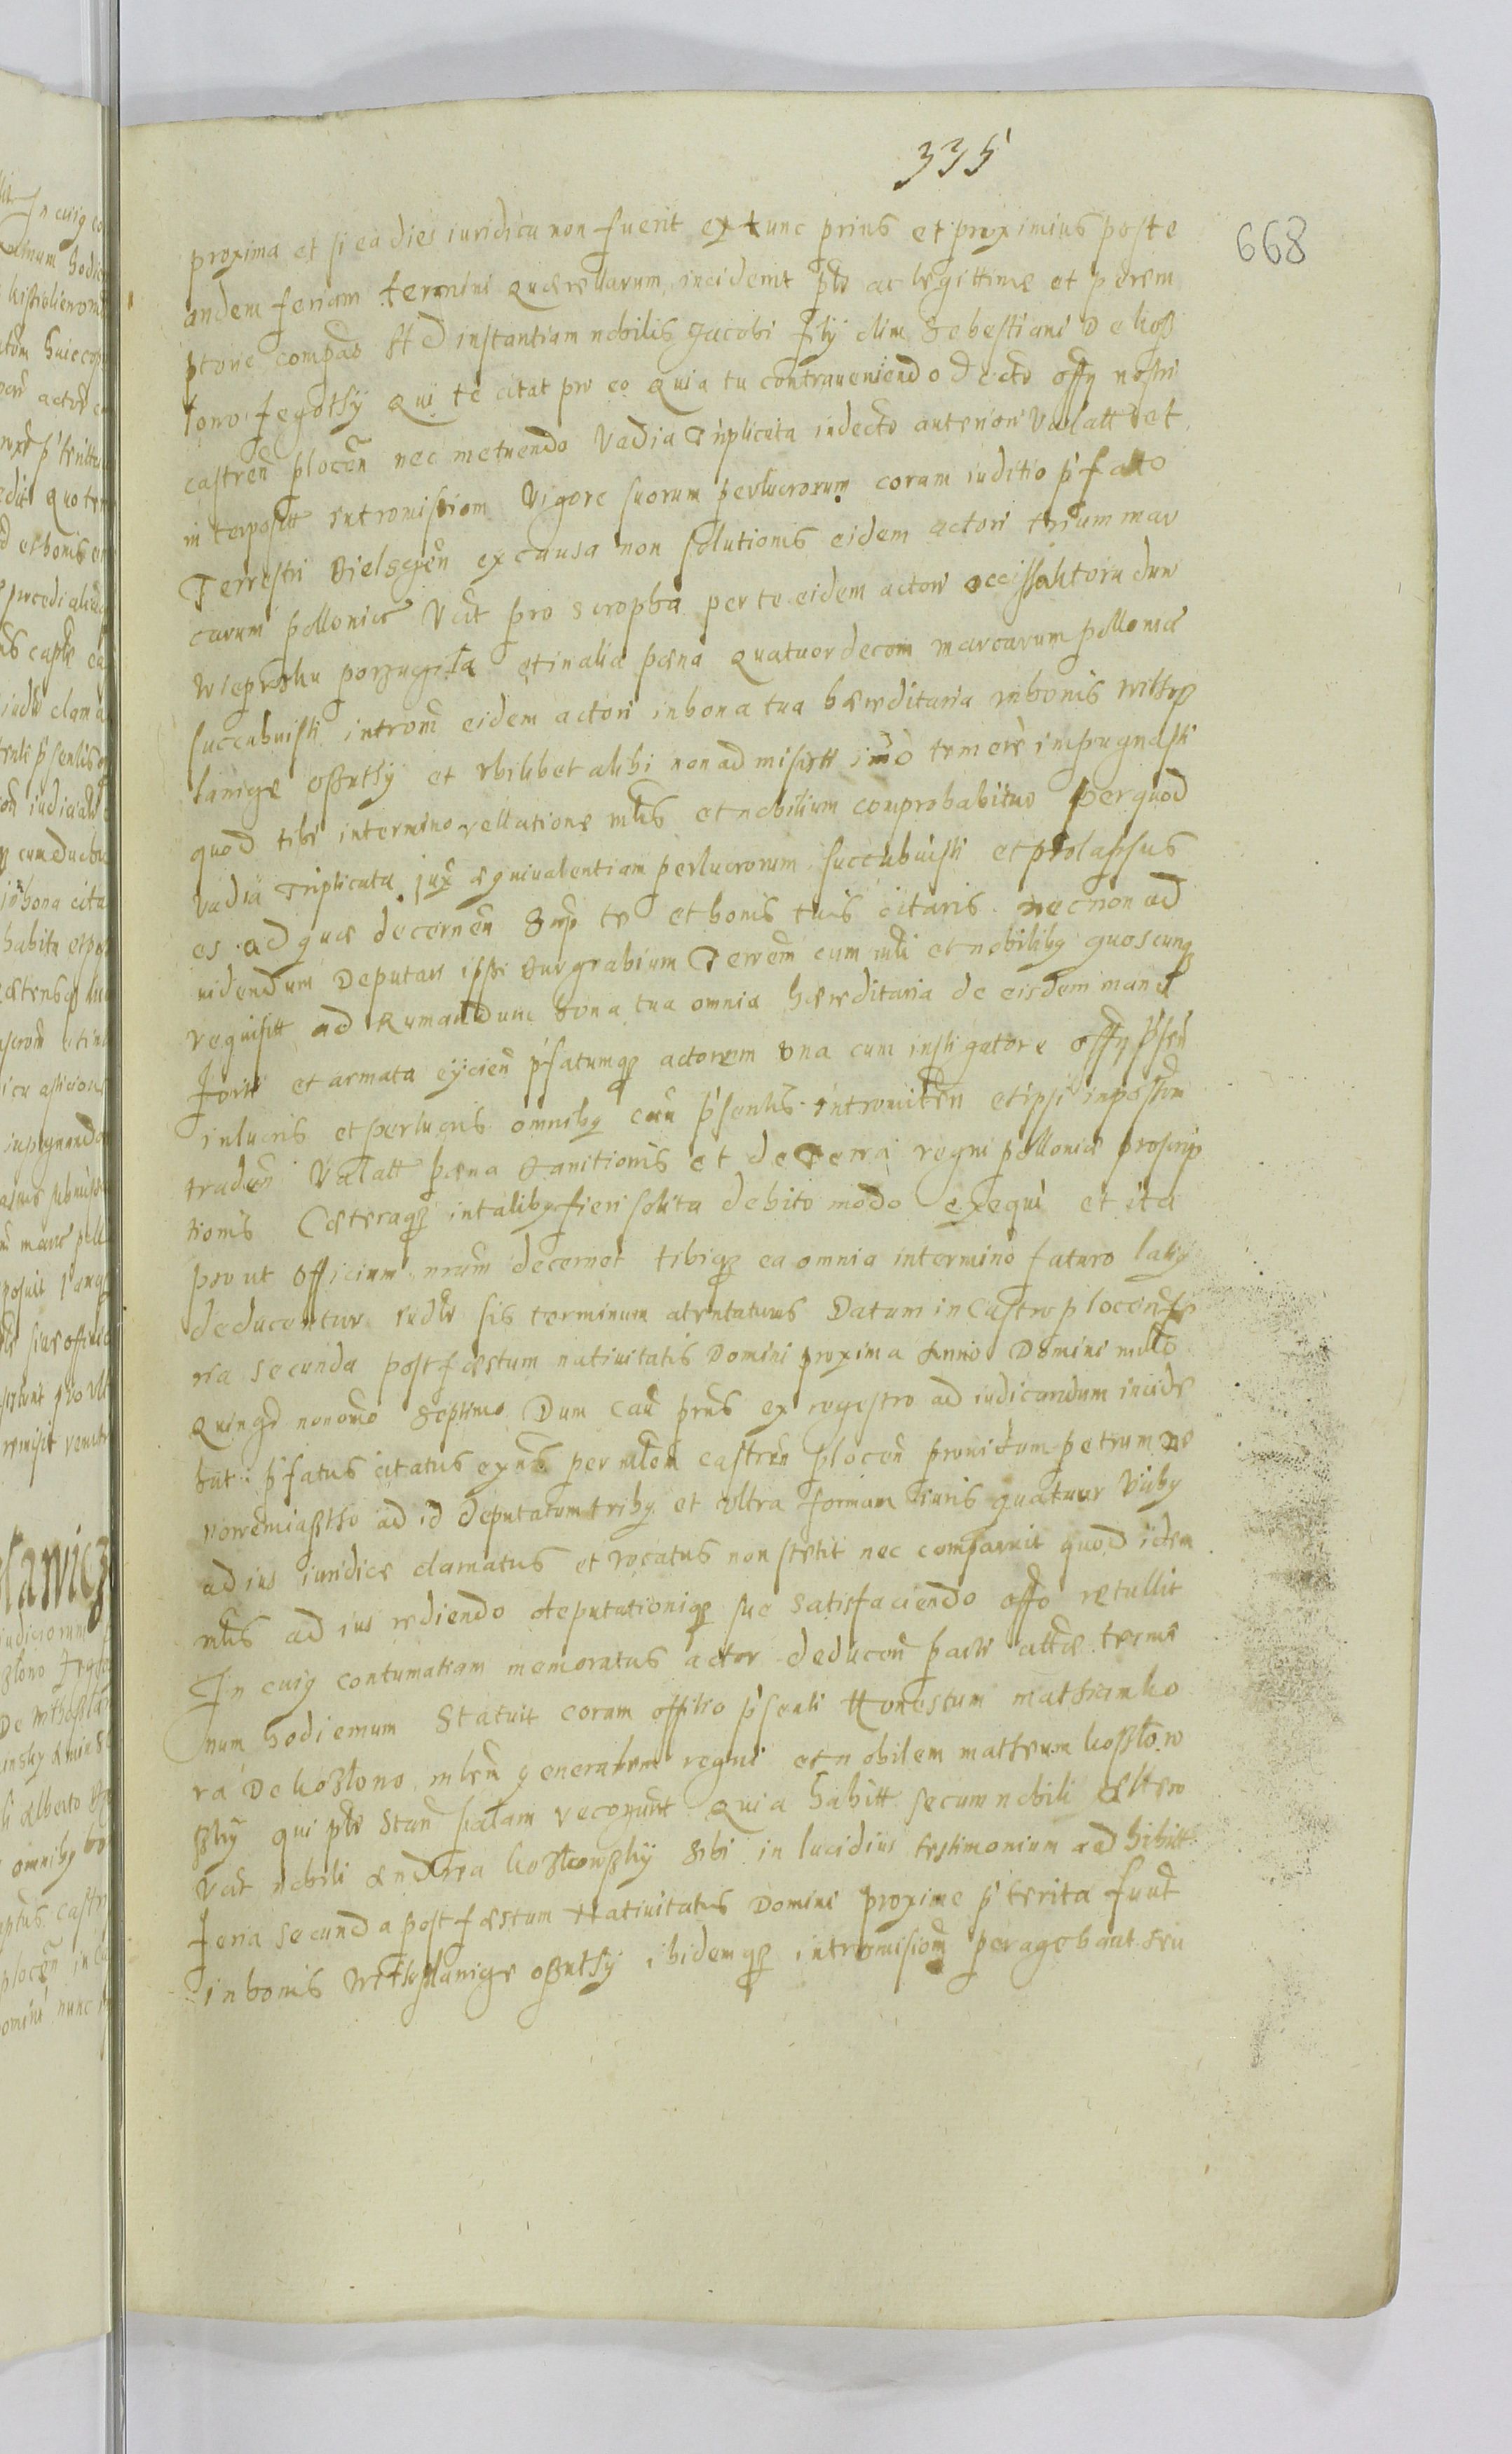 335
668
proxima et si ea dies iuridica non fuerit ex tunc prius et proximius poste
andem feriam termini quærellarum inciderit pte ac legittime et perem
ptorie compas Ad instantiam nobilis Jacobi filij olim Sebestiani de Koss
lono Jegothÿ Qui te citat pro eo quia tu contraueniendo decto offÿ nostri
castreñ ploceñ nec metuendo Vadia Triplicata in decto anteriori Vallatt et
interpositt intromissiom Vigore suorum perlucrorum coram iuditio p'fatto
Terrestri Bielsceñ ex causa non solutionis eidem actori trium mar
carum pollonic Vdt pro scropha per te eidem actori occissa
wieprzku et in alia pæna quatuordecem marcarum pollonic
succubuisti introm eidem actori in bona tua hæreditaria in bonis
et vbilibet alibi non admisistt imo temere impugnasti
quod tibi in termino rellatione mlis et nobilium comprobabitur per quod
vadia Triplicata jux æquiualentiam perlucrorum succubuisti et prolapsus
es ad quæ decerneñ sup te et bonis tuis citaris nec non ad
uidendum Deputari ipsi Burgrabium Terrem cum mli et nobilibq quoscunq
requisitt ad Rumandum bona tua omnia hæreditaria de eisdem manu
forti et armata eÿcieñ p'fatumq actorem vna cum instigatore offÿ p'señ
in lucris et perlucris omnibq cau p'sentis intromitteñ et ipsi in possim
tradeñ Valatt pæna Banitionis et de Terra regni polloniæ proscrip
tionis Cæteraq in talibq fieri solita debito modo exequi et ita
prout officium nrum decernet tibiq ea omnia in termino futuro latiq
deducentur iudr sis terminum attentaturus Datum in Castro plocen fe
ria secunda post fæstum natiuitatis Domini proxima Anno Domini millo
Quingo nonomo Septimo Dum cau prns ex regestro ad iudicandum incide
bat p'fatus citatus ex pns per mlem castreñ ploceñ prouidum petrum de
nowemiastho ad id deputatum tribq et vltra formam iuris quatuor Vicibq
ad ius iuridice clamatus et vocatus non stetit nec comparuit quod idem
mlis ad ius rediendo deputationiq sue satisfaciendo offo retullit
In cuiq contumatiam memoratus actor deduceñ parti attæ termi
num hodiernum Statuit coram offitio p'senti Honestum mathiam ko
ra De koslono mlem generalem regni et nobilem matheum kosslow
skÿ qui pte Stan palam recognrt Quia habitt secum nobili altero
Vdt nobili Andrea kosslowskÿ sibi in lucidius testimonium adhibitt
feria secunda post fæstum Natiuitatis Domini proxime p'terita fuert
in bonis ibidemq intromisiom peragebant seu